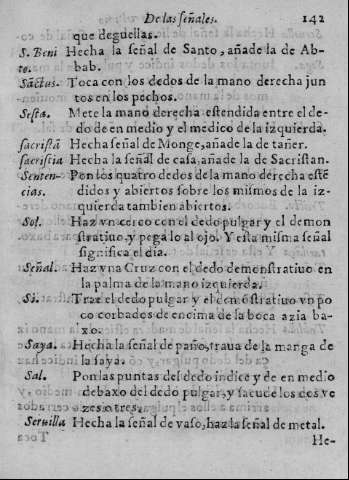 De las señales. 142
que deguellas.
S. Beni Hecha la señal de Santo, añade la de Ab-
to. bab.
Sãctus. Toca con los dedos de la mano derecha jun
tos en los pechos.
Sesta. Mete la mano derecha estendida entre el de-
do de en medio y el medico de la izquierda.
sacristã Hecha señal de Monge, añade la de tañer.
sacristia Hecha la señal de casa, añade la de Sacristan.
Senten- Pon los quatro dedos de la mano derecha estẽ
cias. didos y abiertos sobre los mismos de la iz-
quierda tambien abiertos.
Sol. Haz vn cerco con el dedo pulgar y el demon
stratiuo, y pega lo al ojo. Y esta misma señal
significa el dia.
Señal. Haz vna Cruz con el dedo demonstratiuo en
la palma de la mano izquierda.
Si. Trae el dedo pulgar y el demõstratiuo vn po
co corbados de encima de la boca azia ba-
xo.
Saya. Hecha la señal de paño, traua de la manga de
la saya.
Sal. Pon las puntas del dedo indice y de en medio
debaxo del dedo pulgar, y sacude los dos ve
zes o tres.
Seruilla Hecha la señal de vaso, haz la señal de metal.
He-